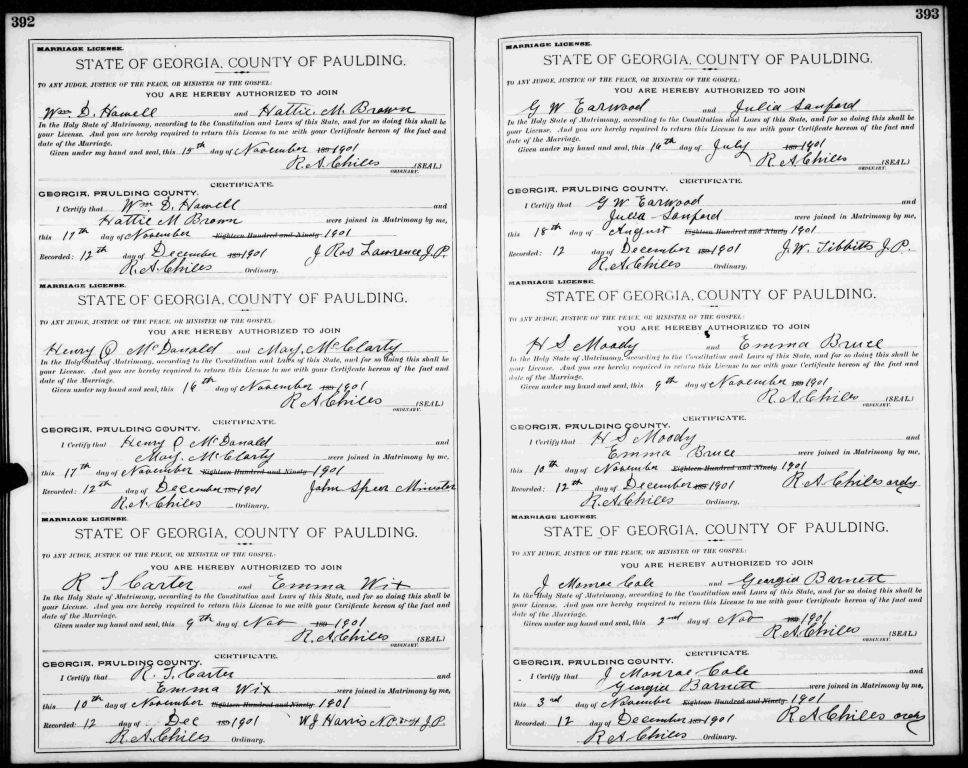 392
MARRIAGE LICENSE.
STATE OF GEORGIA, COUNTY OF PAULDING.
TO ANY JUDGE, JUSTICE OF THE PEACE, OR MINISTER OF THE GOSPEL:
YOU ARE HEREBY AUTHORIZED TO JOIN
Wm D. Howell and Hattie M. Brown
In the Holy State of Matrimony, according to the Constitution and Laws of this State, and for so doing this shall be
your License. And you are hereby required to return this License to me with your Certificate hereon of the fact and
date of the Marriage.
Given under my hand and seal, this 15th day of November 189 1901
R. A. Chiles (SEAL)
ORDINARY.
CERTIFICATE.
GEORGIA, PAULDING COUNTY.
I Certify that Wm D. Howell and
Hattie M Brown were joined in Matrimony by me,
this 17th day of November Eighteen Hundred and Ninety 1901
Recorded: 12th day of December 189 1901 J Ros Lawrence J.P.
R. A. Chiles Ordinary.
MARRIAGE LICENSE.
STATE OF GEORGIA, COUNTY OF PAULDING.
TO ANY JUDGE, JUSTICE OF THE PEACE, OR MINISTER OF THE GOSPEL:
YOU ARE HEREBY AUTHORIZED TO JOIN
Henry O. McDonald and May. McClarty
In the Holy State of Matrimony, according to the Constitution and Laws of this State, and for so doing this shall be
your License. And you are hereby required to return this License to me with your Certificate hereon of the fact and
date of the Marriage.
Given under my hand and seal, this 16th day of November 189 1901
R. A. Chiles (SEAL)
ORDINARY.
CERTIFICATE.
GEORGIA, PAULDING COUNTY.
I Certify that Henry O McDonald and
May. McClarty were joined in Matrimony by me,
this 17th day of November Eighteen Hundred and Ninety 1901
Recorded: 12th day of December 189 1901 John Speer Minister
R. A. Chiles Ordinary.
MARRIAGE LICENSE.
STATE OF GEORGIA, COUNTY OF PAULDING.
TO ANY JUDGE, JUSTICE OF THE PEACE, OR MINISTER OF THE GOSPEL:
YOU ARE HEREBY AUTHORIZED TO JOIN
R. T. Carter and Emma Wix
In the Holy State of Matrimony, according to the Constitution and Laws of this State, and for so doing this shall be
your License. And you are hereby required to return this License to me with your Certificate hereon of the fact and
date of the Marriage.
Given under my hand and seal, this 9th day of Nov 189 1901
R. A. Chiles (SEAL)
ORDINARY.
CERTIFICATE.
GEORGIA, PAULDING COUNTY.
I Certify that R. T. Carter and
Emma Wix were joined in Matrimony by me,
this 10th day of November Eighteen Hundred and Ninety 1901
Recorded: 12 day of Dec 189 1901 W J Harris N.P. J.P.
R. A. Chiles Ordinary.
393
MARRIAGE LICENSE.
STATE OF GEORGIA, COUNTY OF PAULDING.
TO ANY JUDGE, JUSTICE OF THE PEACE, OR MINISTER OF THE GOSPEL:
YOU ARE HEREBY AUTHORIZED TO JOIN
G W Earwood and Julia Sanford
In the Holy State of Matrimony, according to the Constitution and Laws of this State, and for so doing this shall be
your License. And you are hereby required to return this License to me with your Certificate hereon of the fact and
date of the Marriage.
Given under my hand and seal, this 16th day of July 189 1901
R. A. Chiles (SEAL)
ORDINARY.
CERTIFICATE.
GEORGIA, PAULDING COUNTY.
I Certify that G W Earwood and
Julia Sanford were joined in Matrimony by me,
this 18th day of August Eighteen Hundred and Ninety 1901
Recorded: 12 day of December 189 1901 J. W. Tibbitts J.P.
R. A. Chiles Ordinary.
MARRIAGE LICENSE.
STATE OF GEORGIA, COUNTY OF PAULDING.
TO ANY JUDGE, JUSTICE OF THE PEACE, OR MINISTER OF THE GOSPEL:
YOU ARE HEREBY AUTHORIZED TO JOIN
H S Moody and Emma Bruce
In the Holy State of Matrimony, according to the Constitution and Laws of this State, and for so doing this shall be
your License. And you are hereby required to return this License to me with your Certificate hereon of the fact and
date of the Marriage.
Given under my hand and seal, this 9th day of November 189 1901
R. A. Chiles (SEAL)
ORDINARY.
CERTIFICATE.
GEORGIA, PAULDING COUNTY.
I Certify that H S Moody and
Emma Bruce were joined in Matrimony by me,
this 10th day of November Eighteen Hundred and Ninety 1901
Recorded: 12th day of December 189 1901 R. A. Chiles ordy
R. A. Chiles Ordinary.
MARRIAGE LICENSE.
STATE OF GEORGIA, COUNTY OF PAULDING.
TO ANY JUDGE, JUSTICE OF THE PEACE, OR MINISTER OF THE GOSPEL:
YOU ARE HEREBY AUTHORIZED TO JOIN
J Monroe Cole and Georgia Barnett
In the Holy State of Matrimony, according to the Constitution and Laws of this State, and for so doing this shall be
your License. And you are hereby required to return this License to me with your Certificate hereon of the fact and
date of the Marriage.
Given under my hand and seal, this 2nd day of Nov 189 1901
R. A. Chiles (SEAL)
ORDINARY.
CERTIFICATE.
GEORGIA, PAULDING COUNTY.
I Certify that J Monroe Cole and
Georgia Barnett were joined in Matrimony by me,
this 3rd day of November Eighteen Hundred and Ninety 1901
Recorded: 12 day of December 189 1901 R. A. Chiles ordy
R. A. Chiles Ordinary.